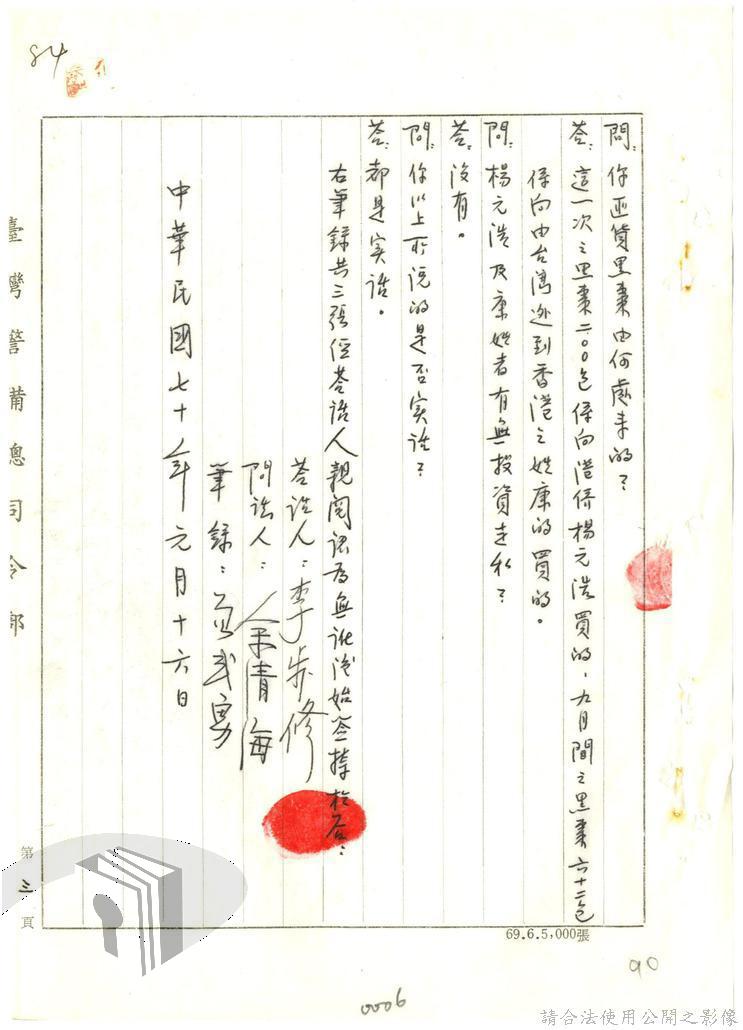 84
問:你亚貨黑棗由何處来的?
荅:這一次之黑棗二〇〇包係向港侨楊元浩買的,九月間之黑棗六十二包
係向由台湾逃到香港之姓康的買的。
問:楊元浩及康姓者有無投資走私?
荅:没有。
問:你以上所说的是否实话?
荅:都是实话。
右筆錄共三張經荅話人親閱認為無訛後始簽捺於后:
荅話人:李 修
問話人:余青海
筆錄: 武勇
中華民國七十年元月十六日
臺灣警備總司令部
第三頁
69.6.5,000張
90
0006
請合法使用公開之影像